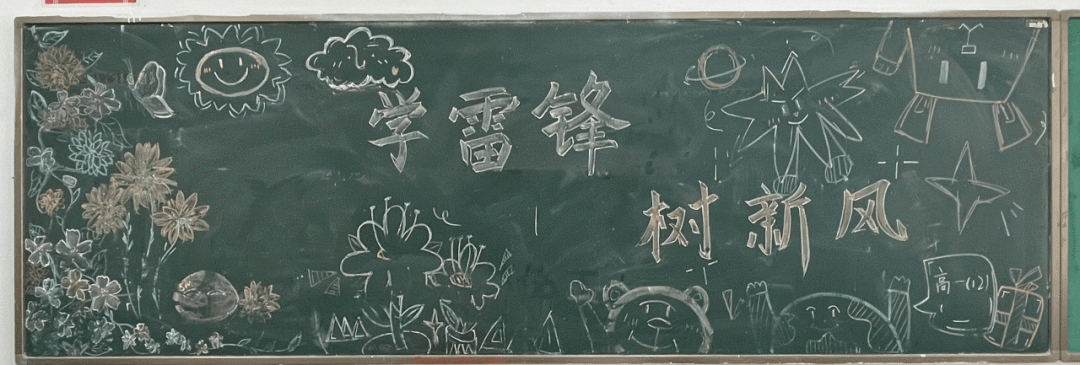 学雷锋
树新风
高一(12)